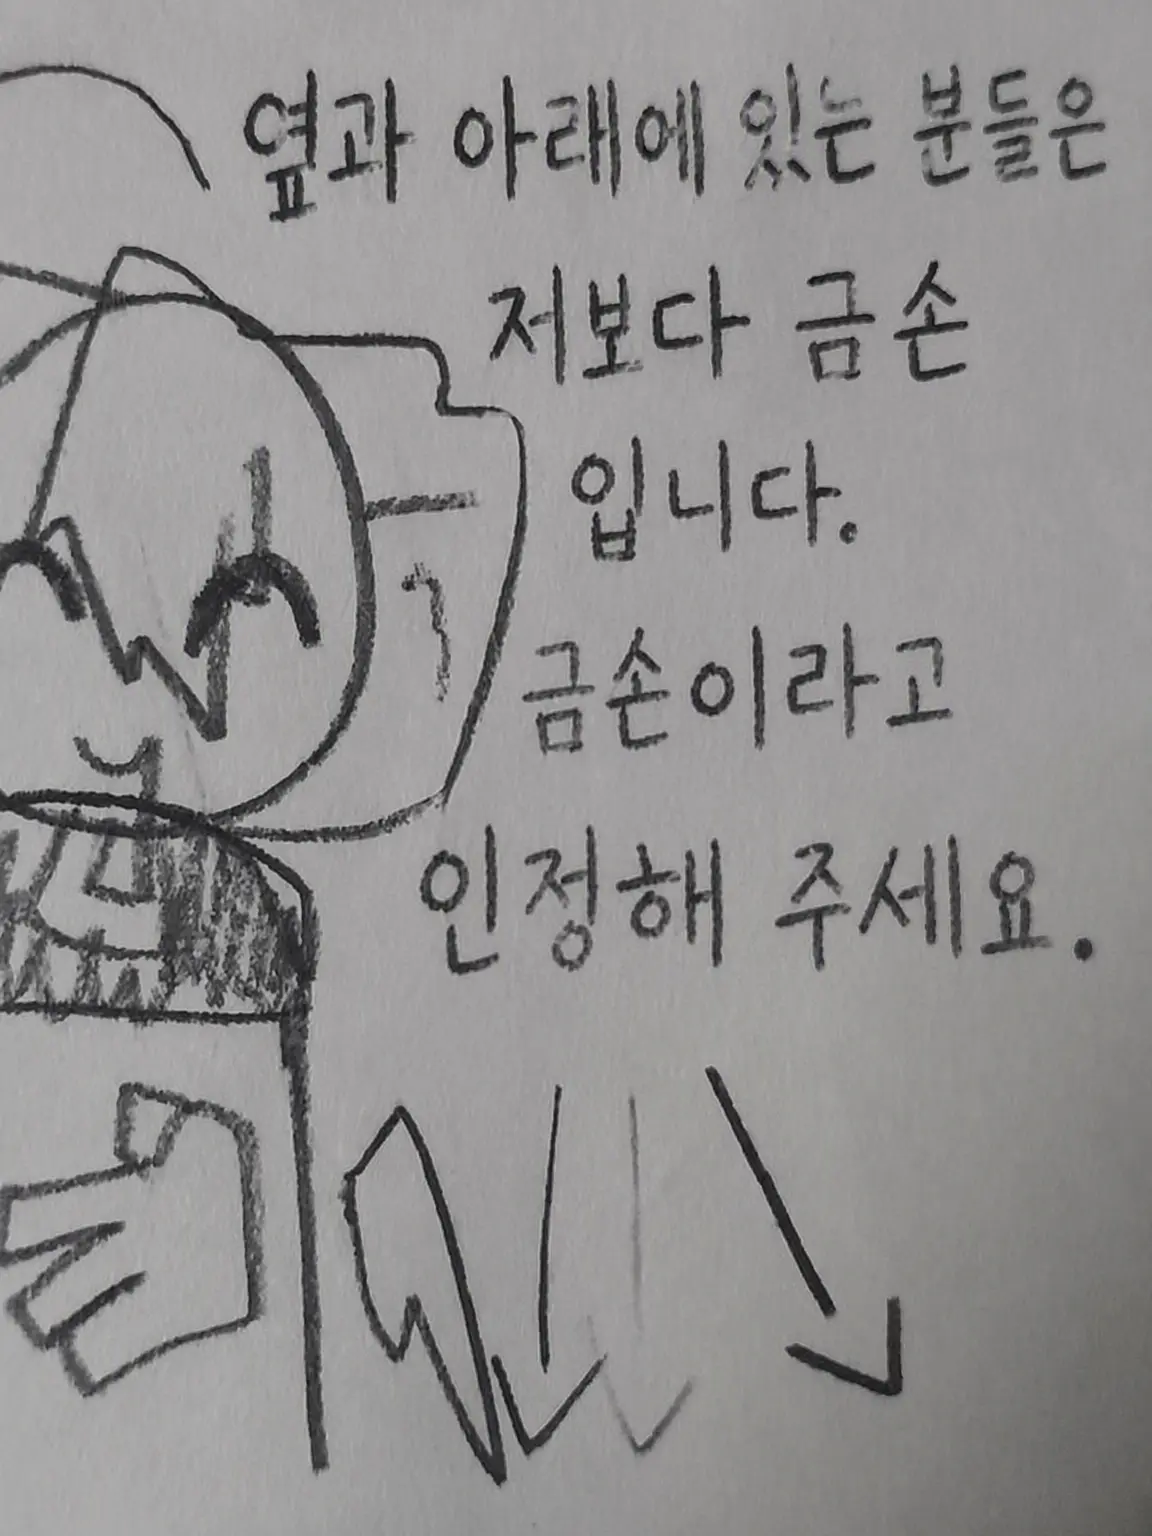 옆과 아래에 있는 분들은
저보다 금손
입니다.
금손이라고
인정해 주세요.